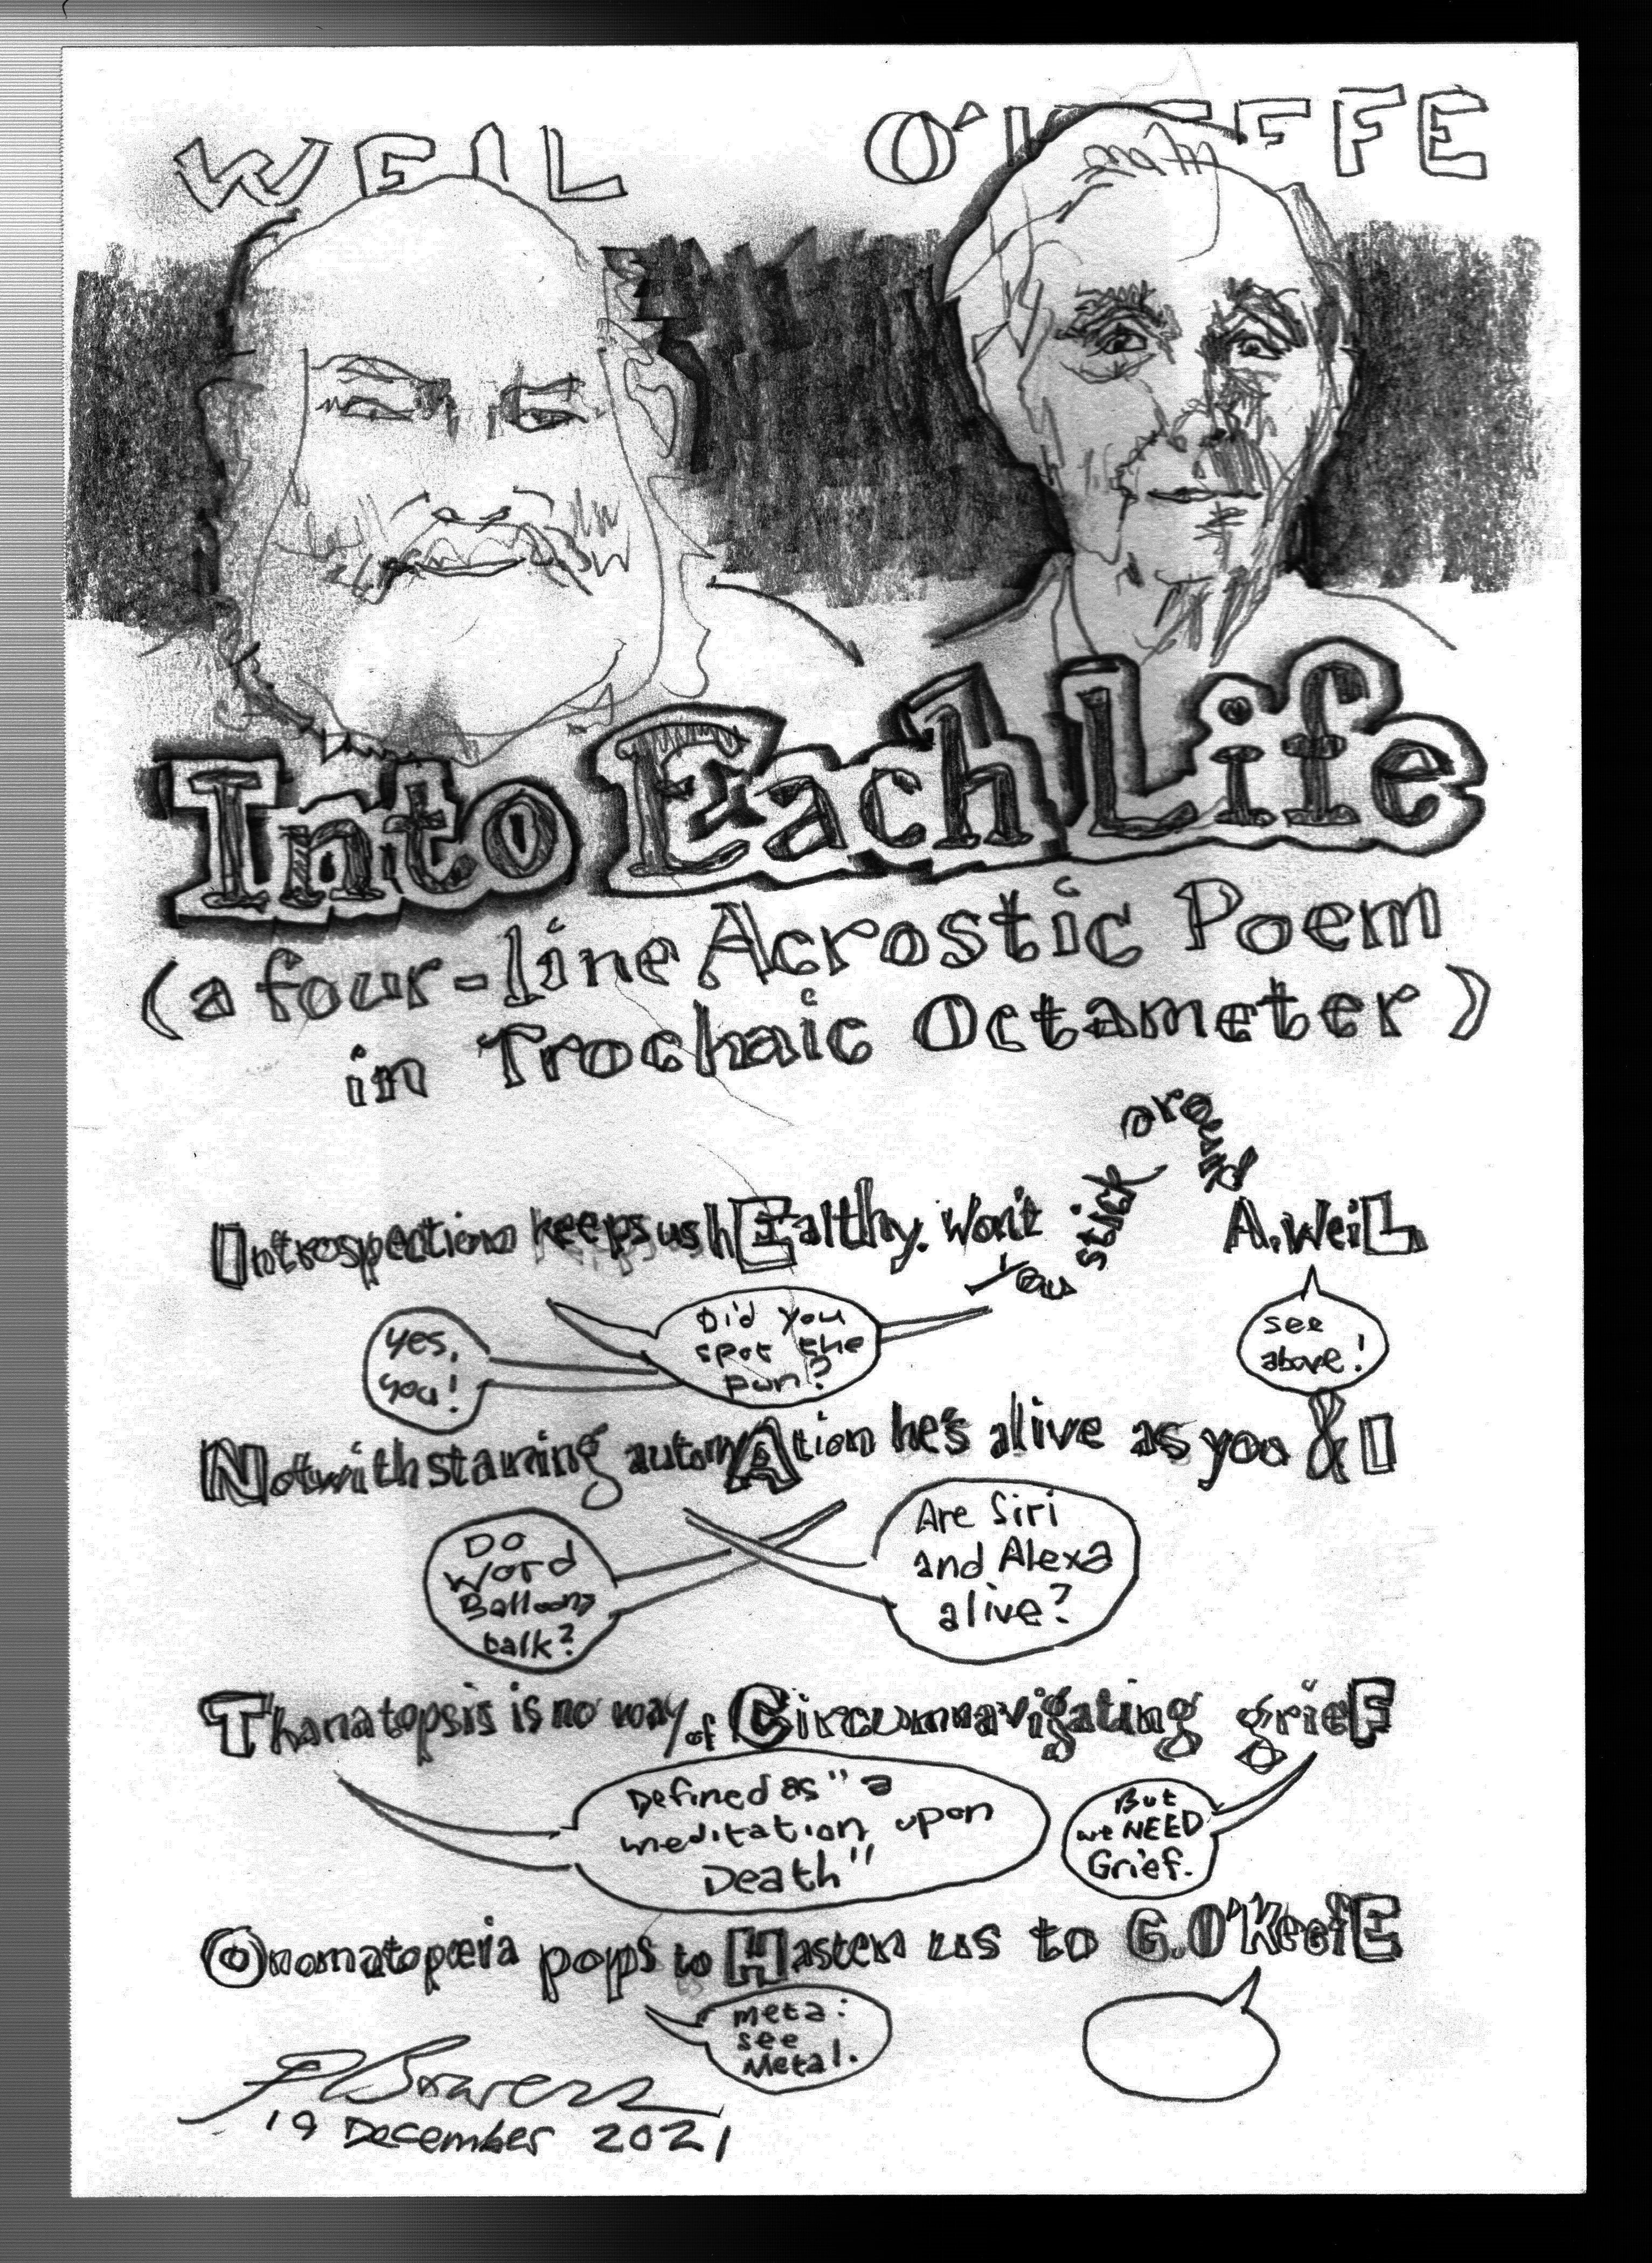 WEIL O'KEEFFE
Into Each Life
(a four-line Acrostic Poem
in Trochaic Octameter)
Introspection keeps us hEalthy. Won't you stick around A. WeiL
Yes,
you!
Did you
spot the
pun?
see
above!
Notwithstaning automAtion he's alive as you & I
Do
Word
Balloons
talk?
Are Siri
and Alexa
alive?
Thanatopsis is no way of Circumnavigating grieF
Defined as "a
meditation upon
Death"
But
we NEED
Grief.
Onomatopœia pops to Hasten us to G. O'KeefE
meta:
see
Metal.
19 December 2021